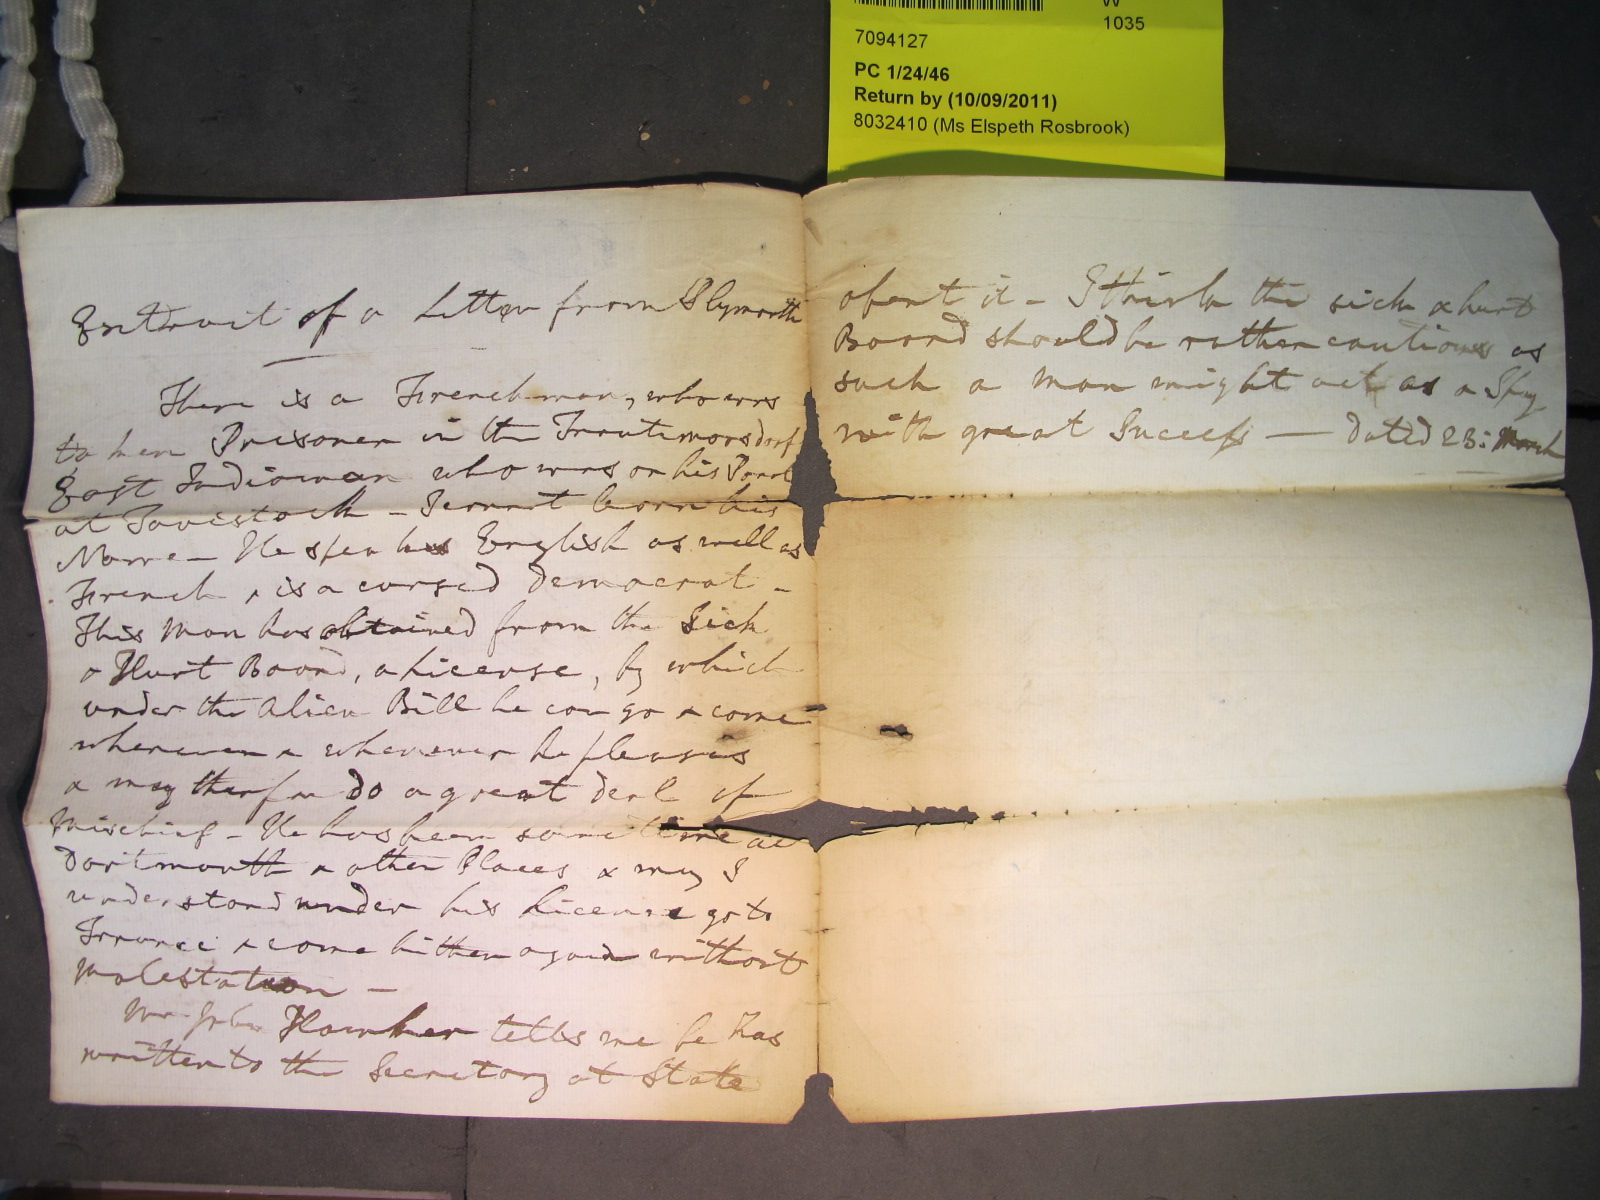 W
1035
7094127
PC 1/24/46
Return by (10/09/2011)
8032410 (Ms Elspeth Rosbrook)
Extract of a Letter from Plymouth
There is a Frenchman, who was
taken Prisoner in the Trautmansdorf
East Indiaman who was on his Parole
at Tavistock - Ternant born his
Name - He speaks English as well as
French & is a cursed Democrat -
This Man has obtained from the Sick
& Hurt Board, a License, by which
under the Alien Bill he can go & come
wherever & whenever he pleases
& may therefore do a great deal of
Mischief - He has been some time at
Dartmouth & other Places & may I
understand under his License go to
France & come hither again without
Molestation -
Mr John Hawker tells me he has
written to the Secretary at State
abont it - I think the sick & hurt
Board should be rather cautious as
such a Man might act as a Spy
with great Success - dated 23: March